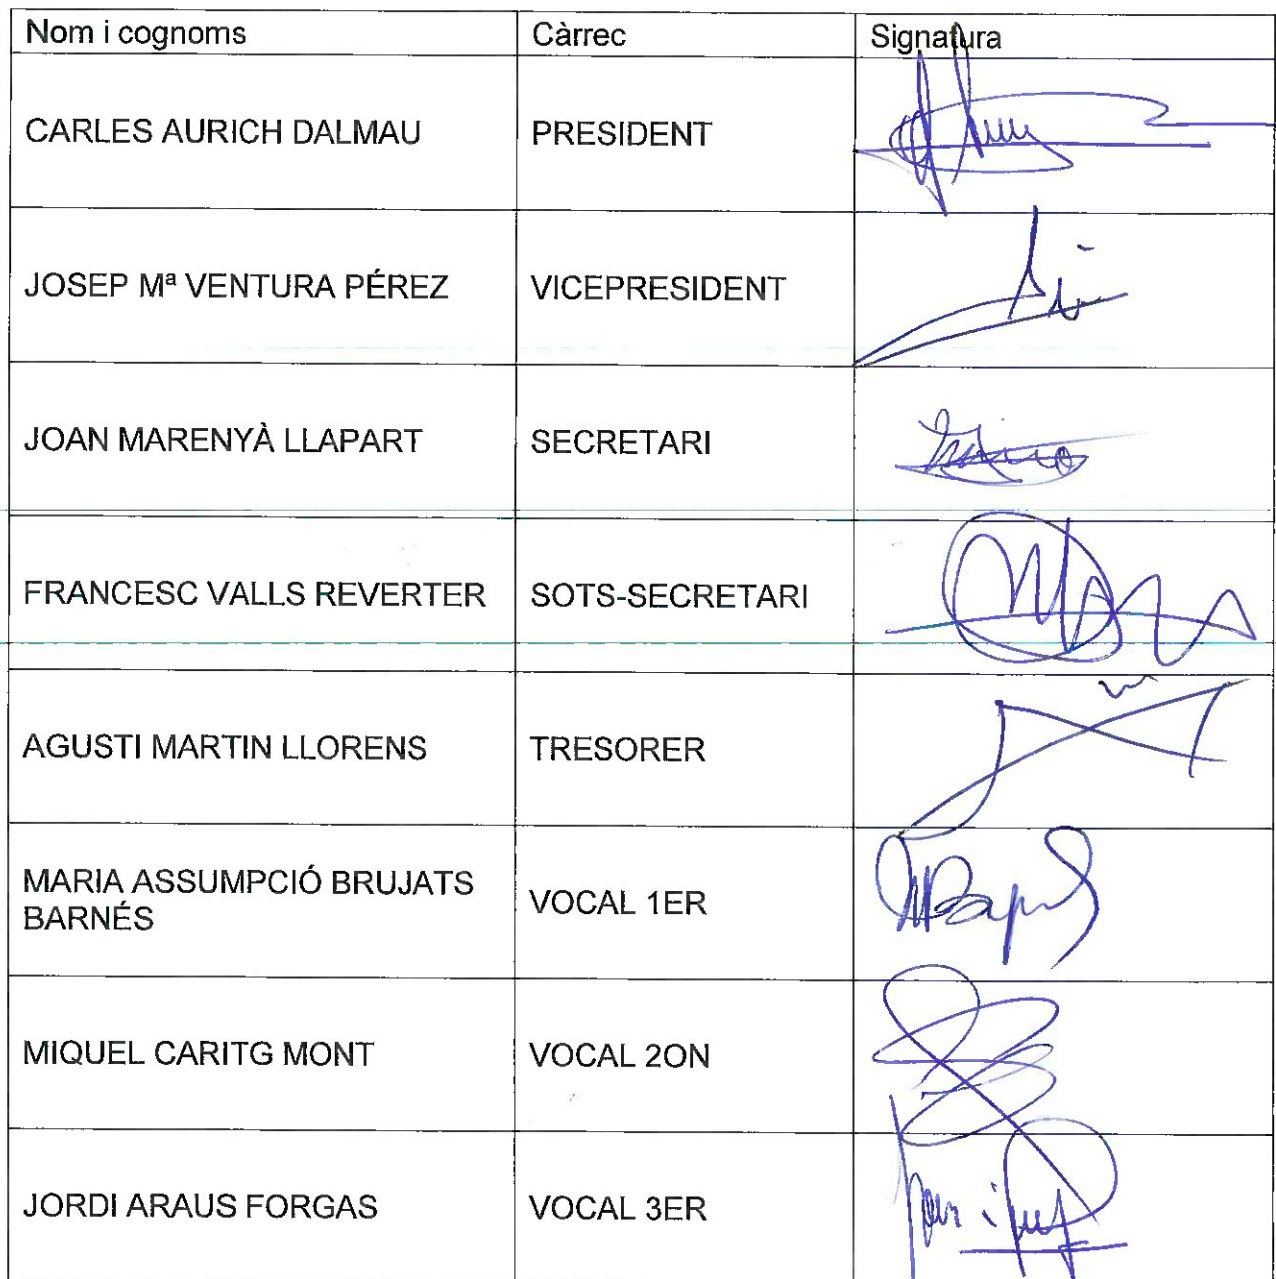 Nom i cognoms Càrrec Signatura
CARLES AURICH DALMAU PRESIDENT
JOSEP Mª VENTURA PÉREZ VICEPRESIDENT
JOAN MARENYÀ LLAPART SECRETARI
FRANCESC VALLS REVERTER SOTS-SECRETARI
AGUSTI MARTIN LLORENS TRESORER
MARIA ASSUMPCIÓ BRUJATS
BARNÉS VOCAL 1ER
MIQUEL CARITG MONT VOCAL 2ON
JORDI ARAUS FORGAS VOCAL 3ER